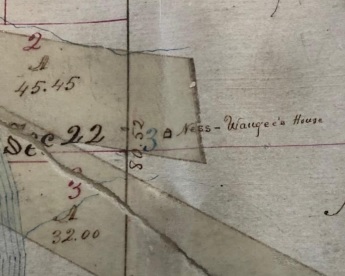 2
A
45.45
Sec 22
80.52
3
Ness-Waugee's House
3
A
32.00